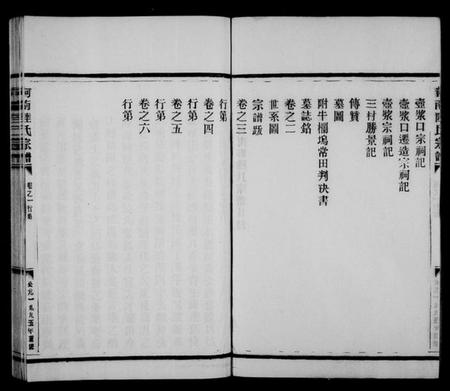 壺漿口宗祠記
壺漿口遷造宗祠記
壺漿宗祠記
三村勝景記
傳贊
墓圖
附牛欄塢常田判決書
墓誌銘
卷之二
世系圖
宗譜跋
卷之三
行第
卷之四
行第
卷之五
行第
卷之六
行第
河南陸氏宗譜
卷之一
公元一九九五年重修